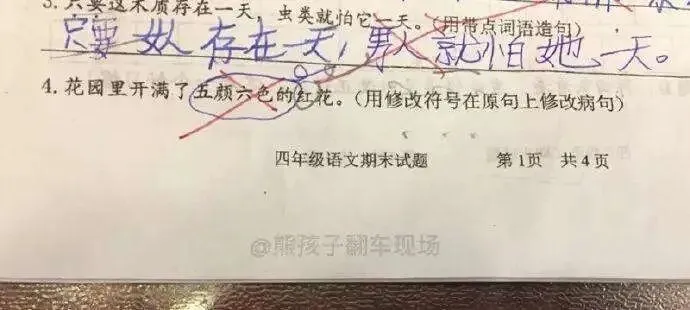 3.只要这木质存在一天，虫类就怕它一天。（用带点词语造句）
只要女人存在一天，男人就怕她一天。
4.花园里开满了五颜六色的红花。（用修改符号在原句上修改病句）
四年级语文期末试题 第1页 共4页
@熊孩子翻车现场